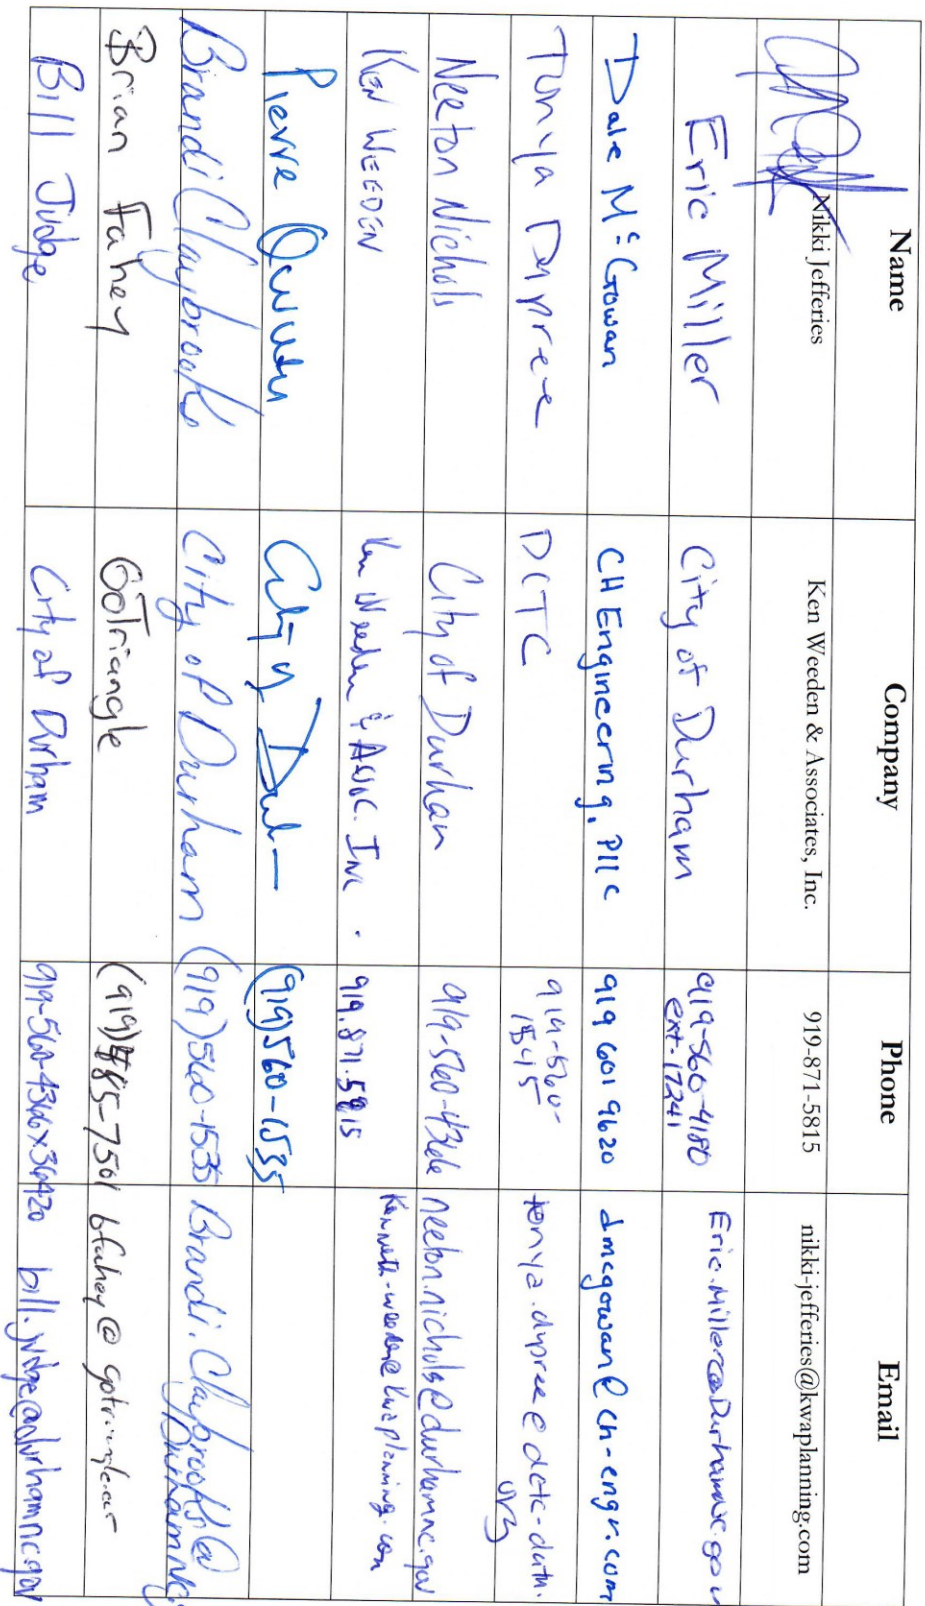 Name Company Phone Email
Nikki Jefferies Ken Weeden & Associates, Inc. 919-871-5815 nikki-jefferies@kwaplanning.com
Eric Miller City of Durham 919-560-4180 Eric.Miller@Durhamnc.gov
ext-17241
Dale McGowan CH Engineering, PLLC 919 601 9620 dmcgowan@ch-engr.com
Tonya Dupree DCTC 919-560- tonya.dupree@dctc-
1545 org
Neeton Nichols City of Durham 919-560-4366 neeton.nichols@durhamnc.gov
Ken Weeden Ken Weeden & Assoc. Inc. 919.871.5815 Kenneth-weeden@kwaplanning.com
Pierre City of (919)560-1535
Brandi Claybrooks City of Durham (919)560-1535 Brandi.Claybrooks@
Durhamnc
Brian Fahey GoTriangle (919)485-7501 bfahey@gotriangle.org
Bill Judge City of Durham 919-560-4366x36420 bill.judge@durhamnc.gov